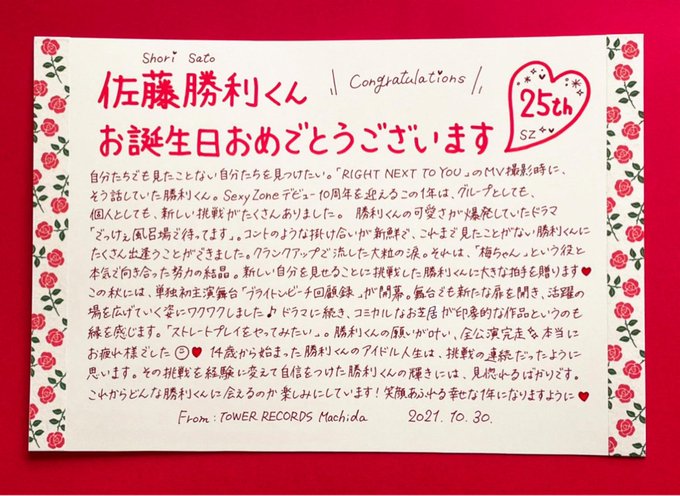 Shori Sato
佐藤勝利くん
Congratulations
お誕生日おめでとうございます
25th
SZ
自分たちでも見たことない自分たちを見つけたい。「RIGHT NEXT TO YOU」のMV撮影時に、
そう話していた勝利くん。Sexy Zoneデビュー10周年を迎えるこの1年は、グループとしても、
個人としても、新しい挑戦がたくさんありました。勝利くんの可愛さが爆発していたドラマ
「でっけぇ風呂場で待ってます」。コントのような掛け合いが新鮮で、これまで見たことがない勝利くんに
たくさん出逢うことができました。クランクアップで流した大粒の涙。それは、「梅ちゃん」という役と
本気で向き合った努力の結晶。新しい自分を見せることに挑戦した勝利くんに大きな拍手を贈ります♥
この秋には、単独初主演舞台「ブライトンビーチ回顧録」が開幕。舞台でも新たな扉を開き、活躍の
場を広げていく姿にワクワクしました♪ドラマに続き、コミカルなお芝居が印象的な作品というのも
縁を感じます。「ストレートプレイをやってみたい」。勝利くんの願いが叶い、全公演完走 本当に
お疲れ様でした☺♥ 14歳から始まった勝利くんのアイドル人生は、挑戦の連続だったように
思います。その挑戦を経験に変えて自信をつけた勝利くんの輝きには、見惚れるばかりです。
これからどんな勝利くんに会えるのか楽しみにしています!笑顔あふれる幸せな1年になりますように♥
From:TOWER RECORDS Machida 2021.10.30.